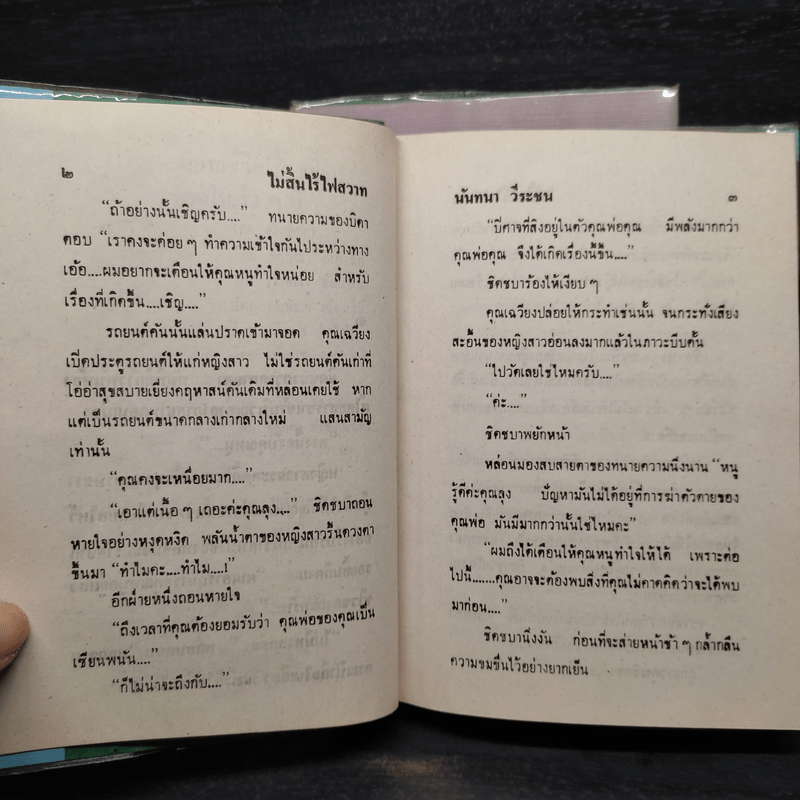 ๒ ไม่สิ้นไร้ไฟสวาท
“ถ้าอย่างนั้นเชิญครับ....” ทนายความของบิดา
ตอบ “เราคงจะค่อย ๆ ทำความเข้าใจกันไประหว่างทาง
เอ้อ....ผมอยากจะเตือนให้คุณหนูทำใจหน่อย สำหรับ
เรื่องที่เกิดขึ้น....เชิญ....”
รถยนต์คันนั้นแล่นปราดเข้ามาจอด คุณเฉวียง
เปิดประตูรถยนต์ให้แก่หญิงสาว ไม่ใช่รถยนต์คันเก่าที่
โอ่อ่าสุขสบายเยี่ยงคฤหาสน์คันเดิมที่หล่อนเคยใช้ หาก
แต่เป็นรถยนต์ขนาดกลางเก่ากลางใหม่ แสนสามัญ
เท่านั้น
“คุณคงจะเหนื่อยมาก....”
“เอาแต่เนื้อ ๆ เถอะค่ะคุณลุง....” ชิดชบาถอน
หายใจอย่างหงุดหงิด พลันน้ำตาของหญิงสาวรื้นดวงตา
ขึ้นมา “ทำไมคะ....ทำไม....!”
อีกฝ่ายหนึ่งถอนหายใจ
“ถึงเวลาที่คุณต้องยอมรับว่า คุณพ่อของคุณเป็น
เซียนพนัน....”
“ก็ไม่น่าจะถึงกับ....”
นันทนา วีระชน ๓
“ปีศาจที่สิงอยู่ในตัวคุณพ่อคุณ มีพลังมากกว่า
คุณพ่อคุณ จึงได้เกิดเรื่องนี้ขึ้น....”
ชิดชบาร้องไห้เงียบ ๆ
คุณเฉวียงปล่อยให้กระทำเช่นนั้น จนกระทั่งเสียง
สะอื้นของหญิงสาวอ่อนลงมากแล้วในภาวะบีบคั้น
“ไปวัดเลยใช่ไหมครับ....”
“ค่ะ....”
ชิดชบาพยักหน้า
หล่อนมองสบสายตาของทนายความนิ่งนาน “หนู
รู้ดีค่ะคุณลุง ปัญหามันไม่ได้อยู่ที่การฆ่าตัวตายของ
คุณพ่อ มันมีมากกว่านั้นใช่ไหมคะ”
“ผมถึงได้เตือนให้คุณหนูทำใจให้ได้ เพราะต่อ
ไปนี้.......คุณอาจจะต้องพบสิ่งที่คุณไม่คาดคิดว่าจะได้พบ
มาก่อน....”
ชิดชบานิ่งงัน ก่อนที่จะส่ายหน้าช้า ๆ กล้ำกลืน
ความขมขื่นไว้อย่างยากเย็น